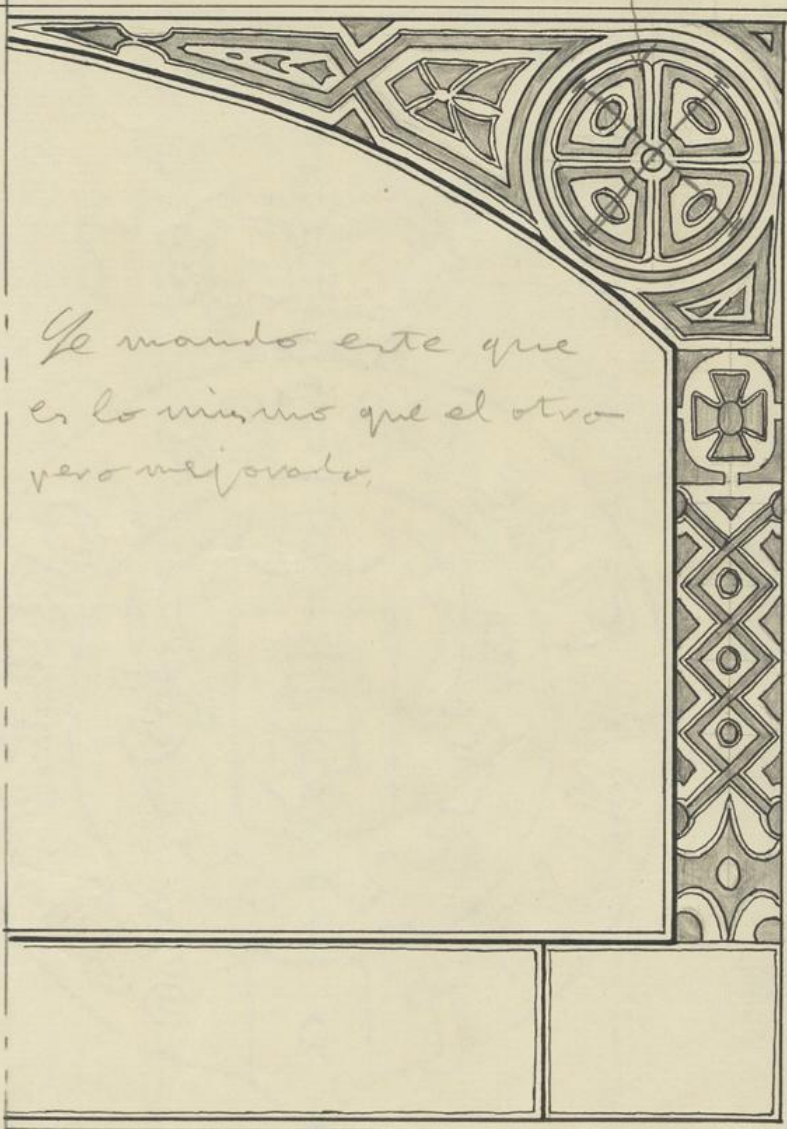 Le mando este que
es lo mismo que el otro
pero mejorado.